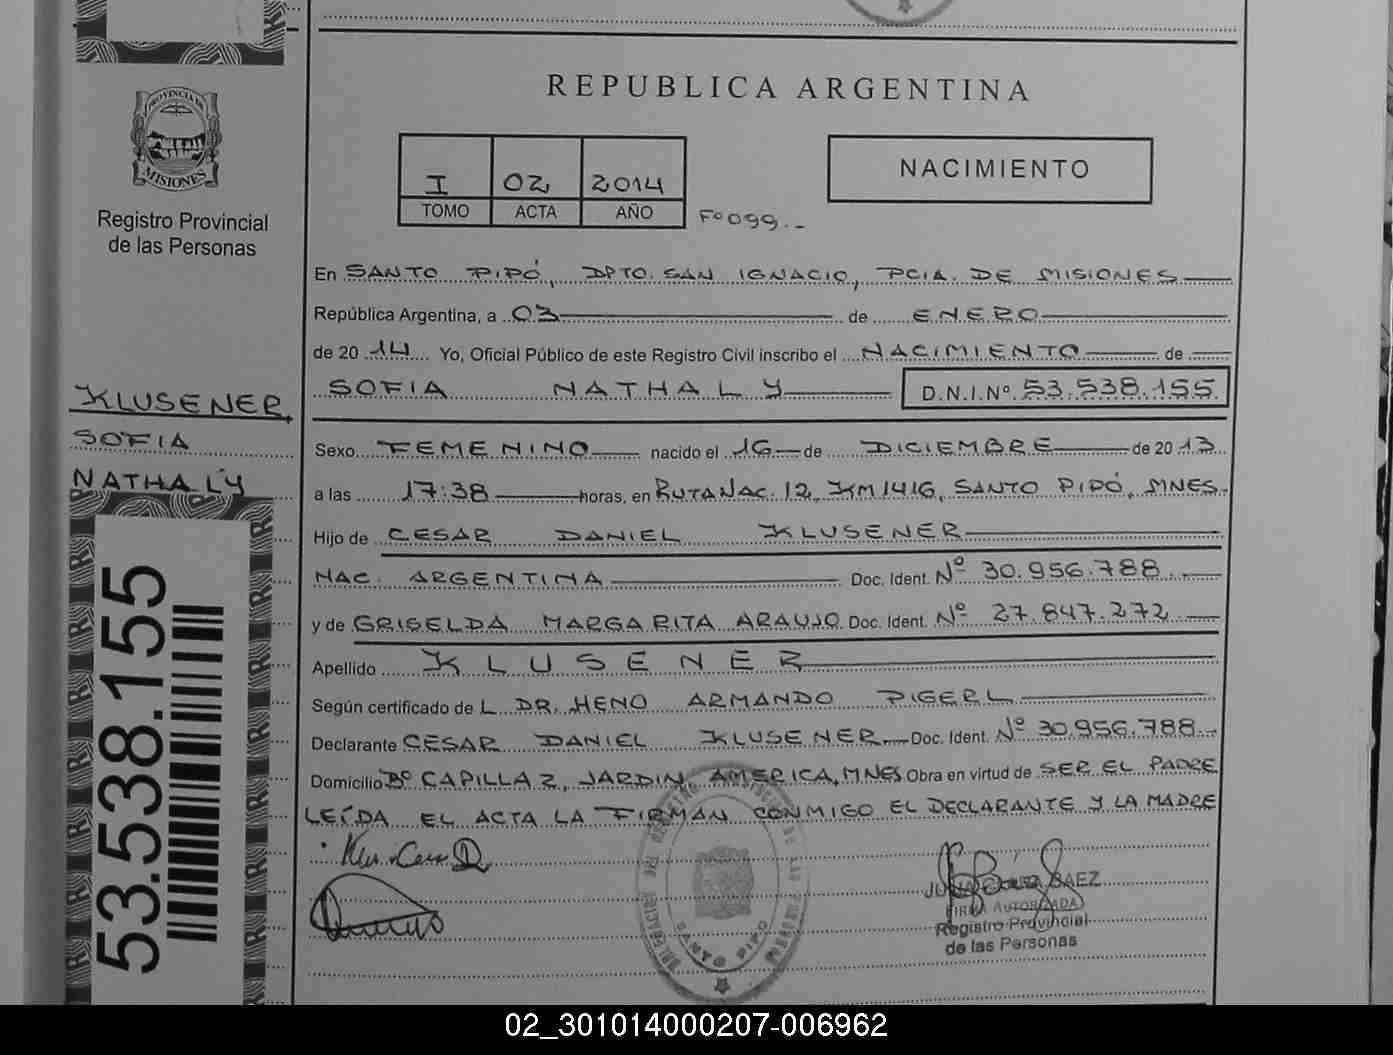 PROVINCIA DE
MISIONES
Registro Provincial
de las Personas
KLUSENER
SOFIA
NATHALY
53.538.155
REPUBLICA ARGENTINA
I 02 2014
TOMO ACTA AÑO
Fº 099.-
NACIMIENTO
En SANTO PIPÓ, DPTO. SAN IGNACIO, PCIA. DE MISIONES
República Argentina, a 03 de ENERO
de 20 14 Yo, Oficial Público de este Registro Civil inscribo el NACIMIENTO de
SOFIA NATHALY D.N.I.Nº 53.538.155
Sexo FEMENINO nacido el 16 de DICIEMBRE de 20 13
a las 17:38 horas, en RUTA NAC. 12, KM 1416, SANTO PIPÓ, MNES.
Hijo de CESAR DANIEL KLUSENER
NAC. ARGENTINA Doc. Ident. Nº 30.956.788
y de GRISELDA MARGARITA ARAUJO Doc. Ident. Nº 27.847.272
Apellido KLUSENER
Según certificado de L DR. HENO ARMANDO PIGERL
Declarante CESAR DANIEL KLUSENER Doc. Ident. Nº 30.956.788
Domicilio Bº CAPILLA 2, JARDIN AMERICA, MNES Obra en virtud de SER EL PADRE
LEÍDA EL ACTA LA FIRMAN CONMIGO EL DECLARANTE Y LA MADRE
SANTO PIPO
BAEZ
FIRMA AUTORIZADA
Registro Provincial
de las Personas
02_301014000207-006962